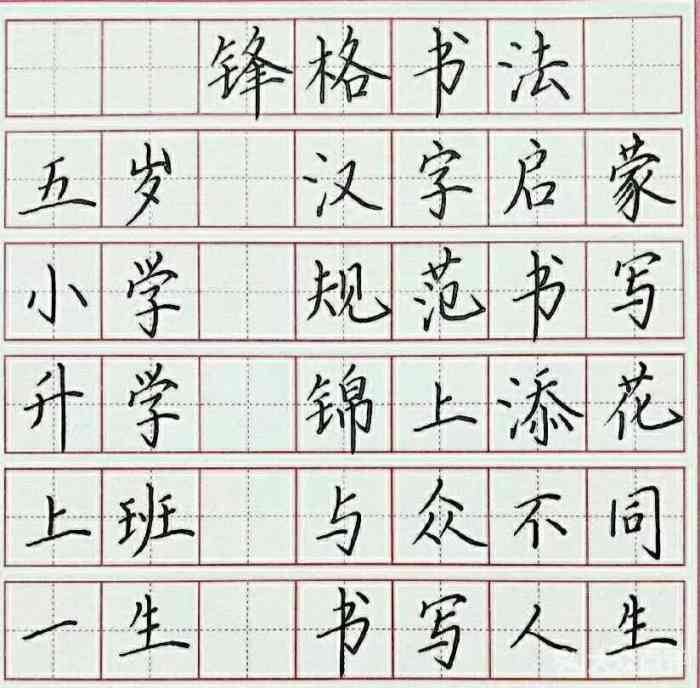 锋格书法
五岁 汉字启蒙
小学 规范书写
升学 锦上添花
上班 与众不同
一生 书写人生